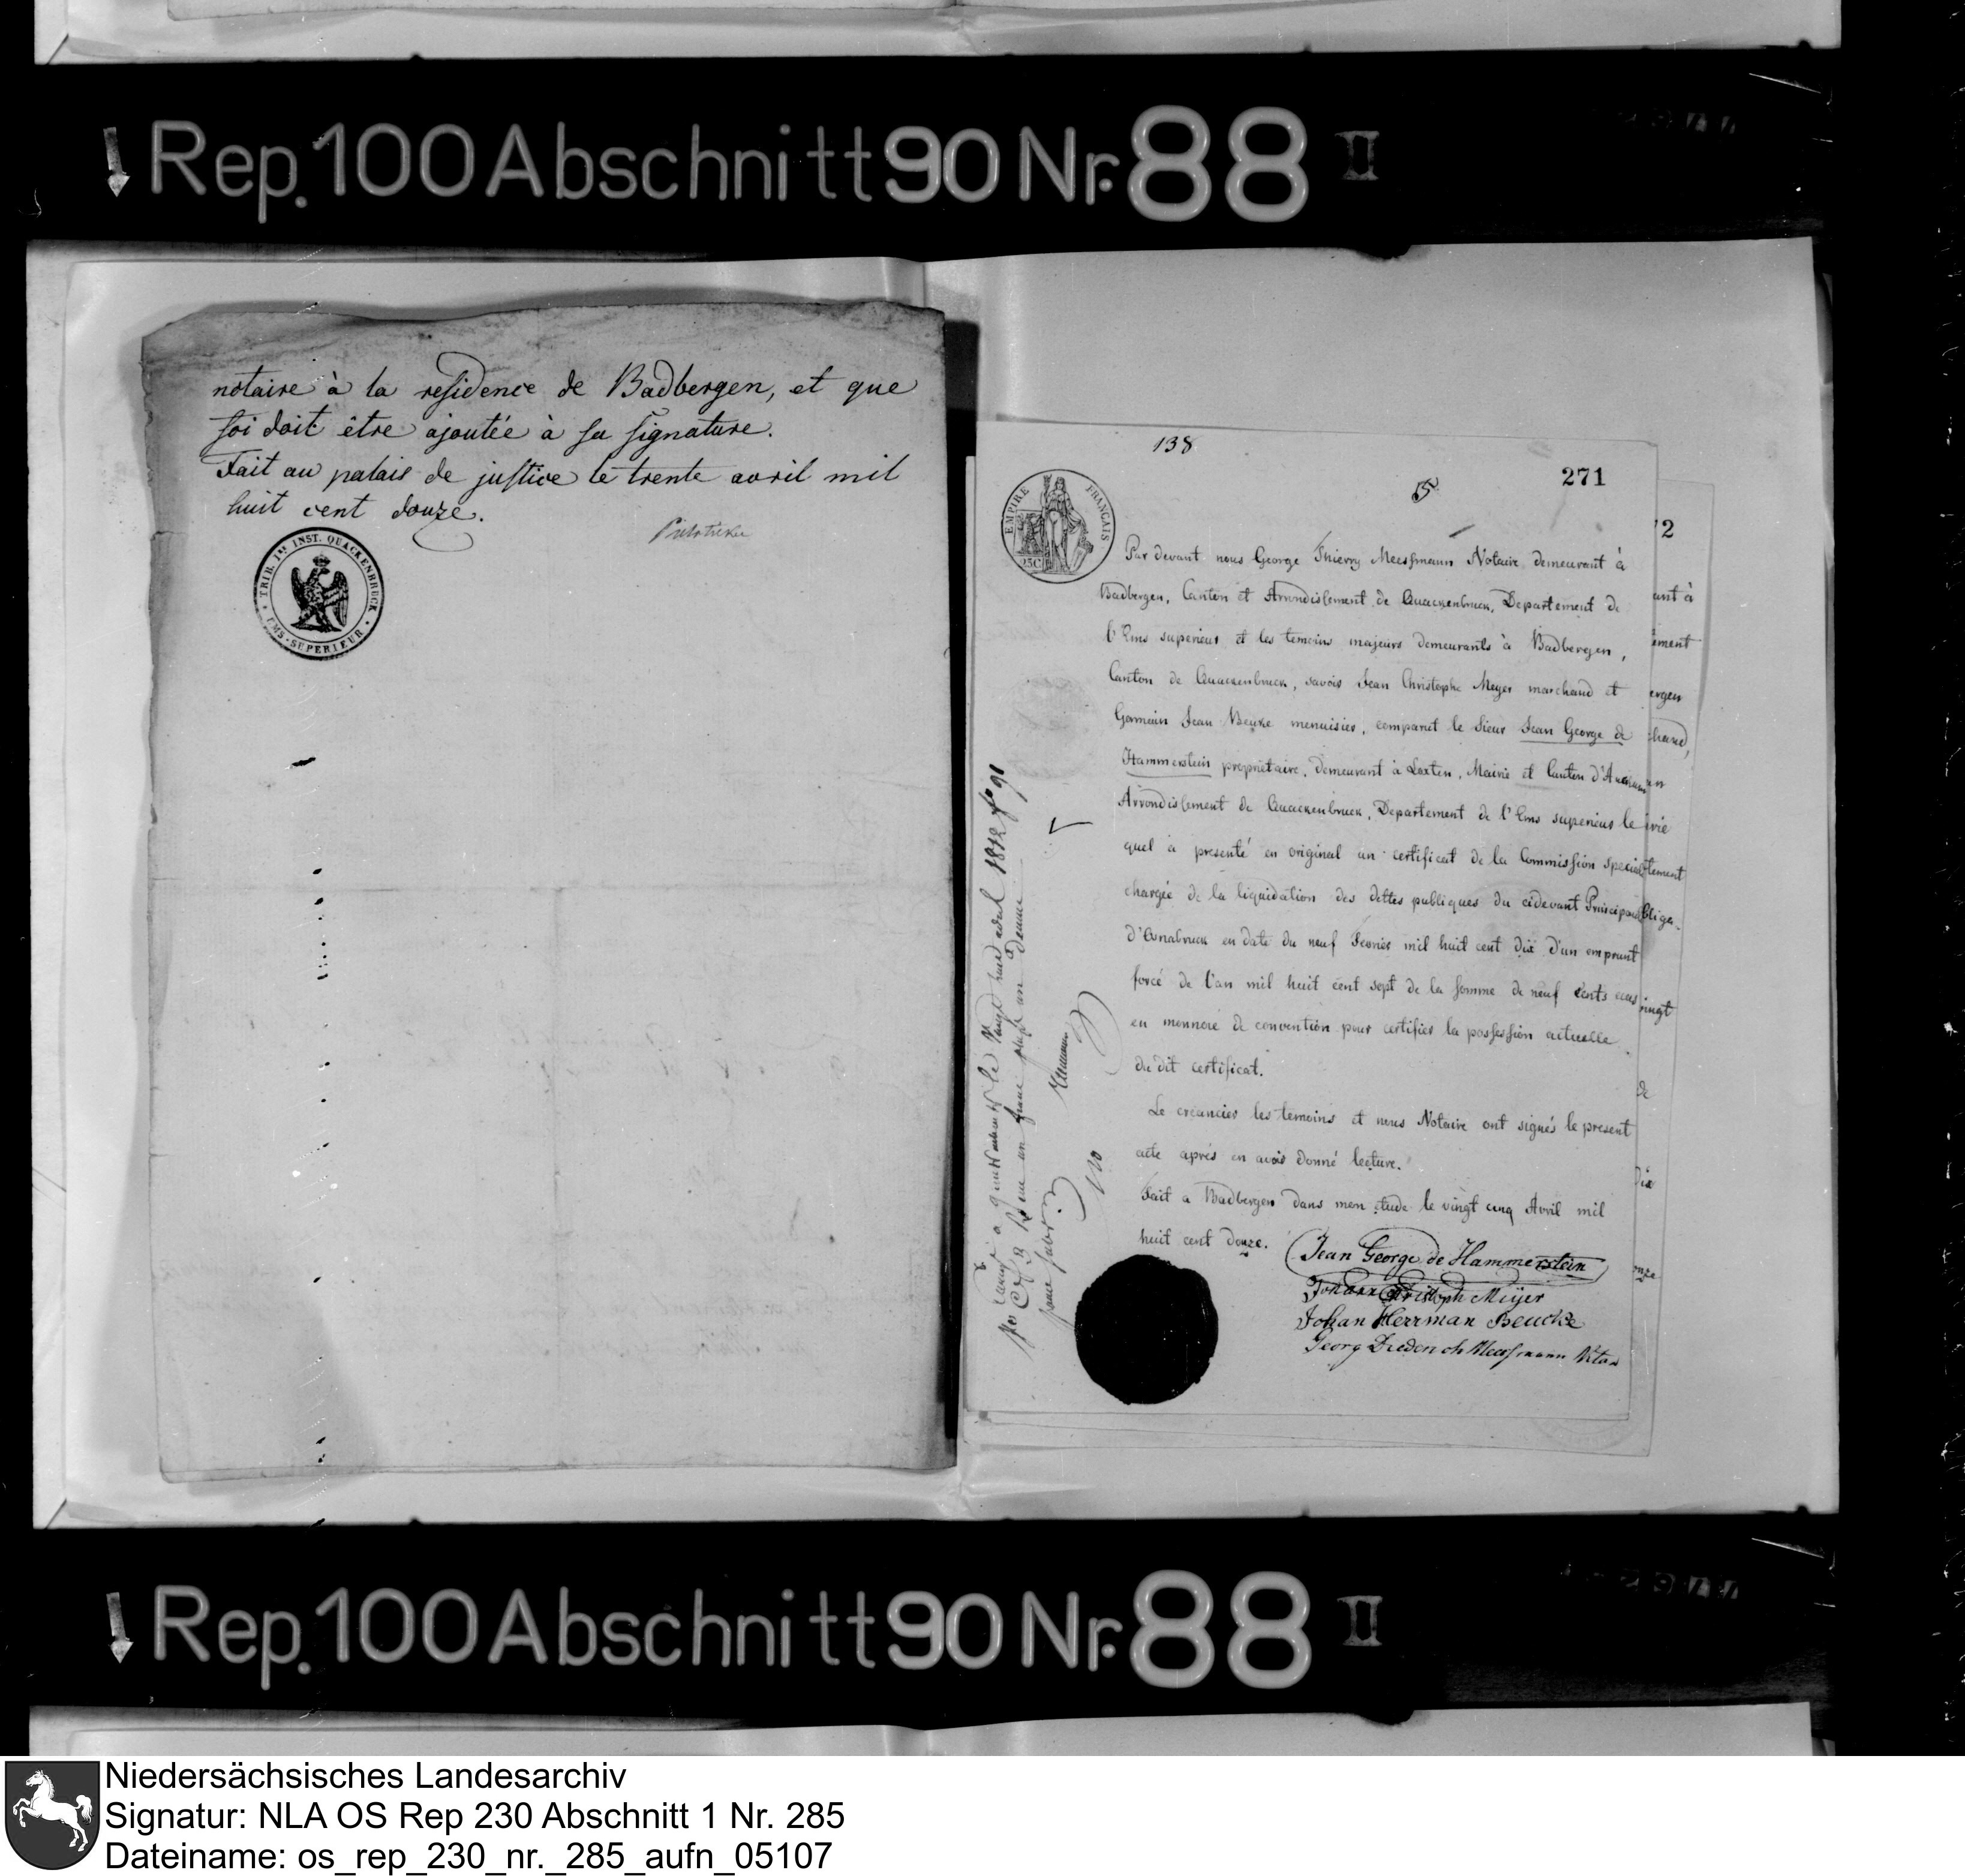 Rep. 100 Abschnitt 90 Nr. 88 II
notaire à la residence de Badbergen, et que
foi doit être ajoutée à sa signature.
Fait au palais de justice le trente avril mil
huit cent douze.
TRIB. 1RE INST. QUACKENBRUCK
EMS-SUPERIEUR
138
271
5
EMPIRE FRANÇAIS
25C
Par devant nous George Thierry Meessmann Notaire demeurant à
Badbergen, Canton et Arrondissement de Quackenbruck, Departement de
l'Ems superieur et les temoins majeurs demeurants à Badbergen,
Canton de Quackenbruck, savoir Jean Christophe Meyer marchand et
Germain Jean Beuke menuisier, comparut le Sieur Jean George de
Hammerstein proprietaire, demeurant à Loxten, Mairie et Canton
Arrondissement de Quackenbruck, Departement de l'Ems superieur le
quel a presenté en original un certificat de la Commission speciale
chargée de la liquidation des dettes publiques du cidevant
d'Osnabruck en date du neuf Fevrier mil huit cent dix d'un emprunt
forcé de l'an mil huit cent sept de la somme de neuf cents ecus
en monnoie de convention pour certifier la possession actuelle
du dit certificat.
Le creancier les temoins et nous Notaire ont signés le present
acte après en avoir donné lecture.
Fait a Badbergen dans mon etude le vingt cinq Avril mil
huit cent douze.
Jean George de Hammerstein
Johann Christoph Meyer
Johan Herrman Beucke
Georg Diederich Meessmann
2
ant à
ement
ergen
chand,
tement
vingt
de
dix
onze
Rep. 100 Abschnitt 90 Nr. 88 II
Niedersächsisches Landesarchiv
Signatur: NLA OS Rep 230 Abschnitt 1 Nr. 285
Dateiname: os_rep_230_nr._285_aufn_05107